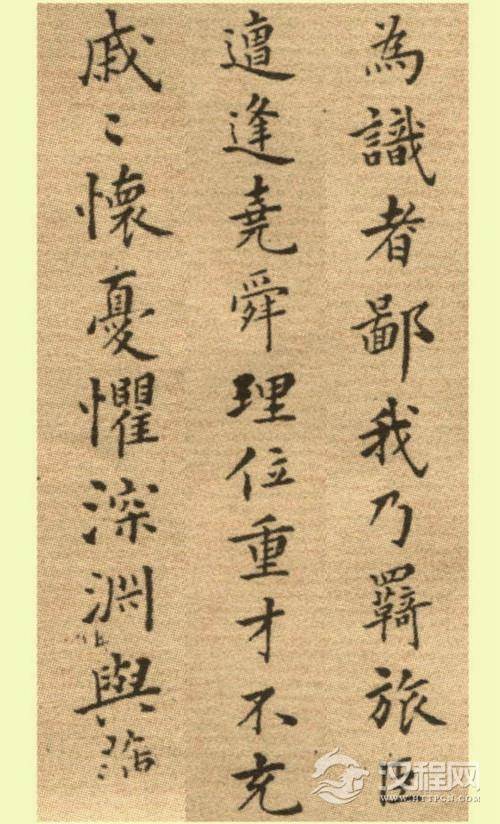 為識者鄙我乃羈旅
遭逢堯舜理位重才不充
戚〻懷憂懼深淵與
汉程网
WWW.HTTPCN.COM